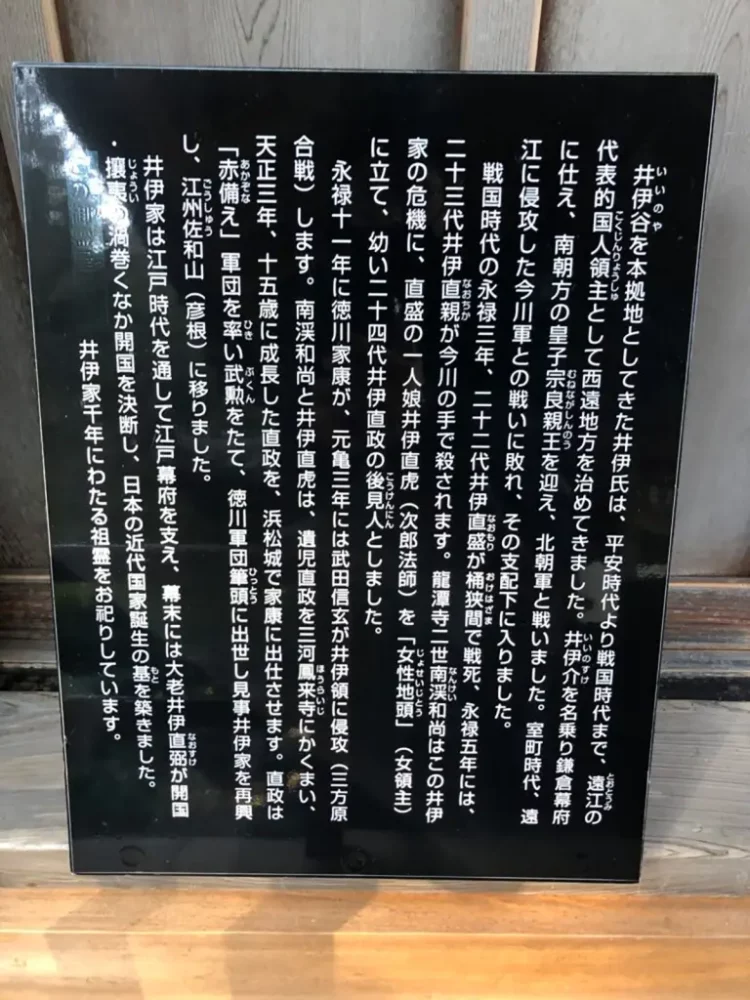 井伊谷を本拠地としてきた井伊氏は、平安時代より戦国時代まで、遠江の
代表的国人領主として西遠地方を治めてきました。井伊介を名乗り鎌倉幕府
に仕え、南朝方の皇子宗良親王を迎え、北朝軍と戦いました。室町時代、遠
江に侵攻した今川軍との戦いに敗れ、その支配下に入りました。
戦国時代の永禄三年、二十二代井伊直盛が桶狭間で戦死、永禄五年には、
二十三代井伊直親が今川の手で殺されます。龍潭寺二世南渓和尚はこの井伊
家の危機に、直盛の一人娘井伊直虎（次郎法師）を「女性地頭」（女領主）
に立て、幼い二十四代井伊直政の後見人としました。
永禄十一年に徳川家康が、元亀三年には武田信玄が井伊領に侵攻（三方原
合戦）します。南渓和尚と井伊直虎は、遺児直政を三河鳳来寺にかくまい、
天正三年、十五歳に成長した直政を、浜松城で家康に出仕させます。直政は
「赤備え」軍団を率い武勲をたて、徳川軍団筆頭に出世し見事井伊家を再興
し、江州佐和山（彦根）に移りました。
井伊家は江戸時代を通して江戸幕府を支え、幕末には大老井伊直弼が開国
・攘夷の渦巻くなか開国を決断し、日本の近代国家誕生の基を築きました。
井伊家千年にわたる祖霊をお祀りしています。